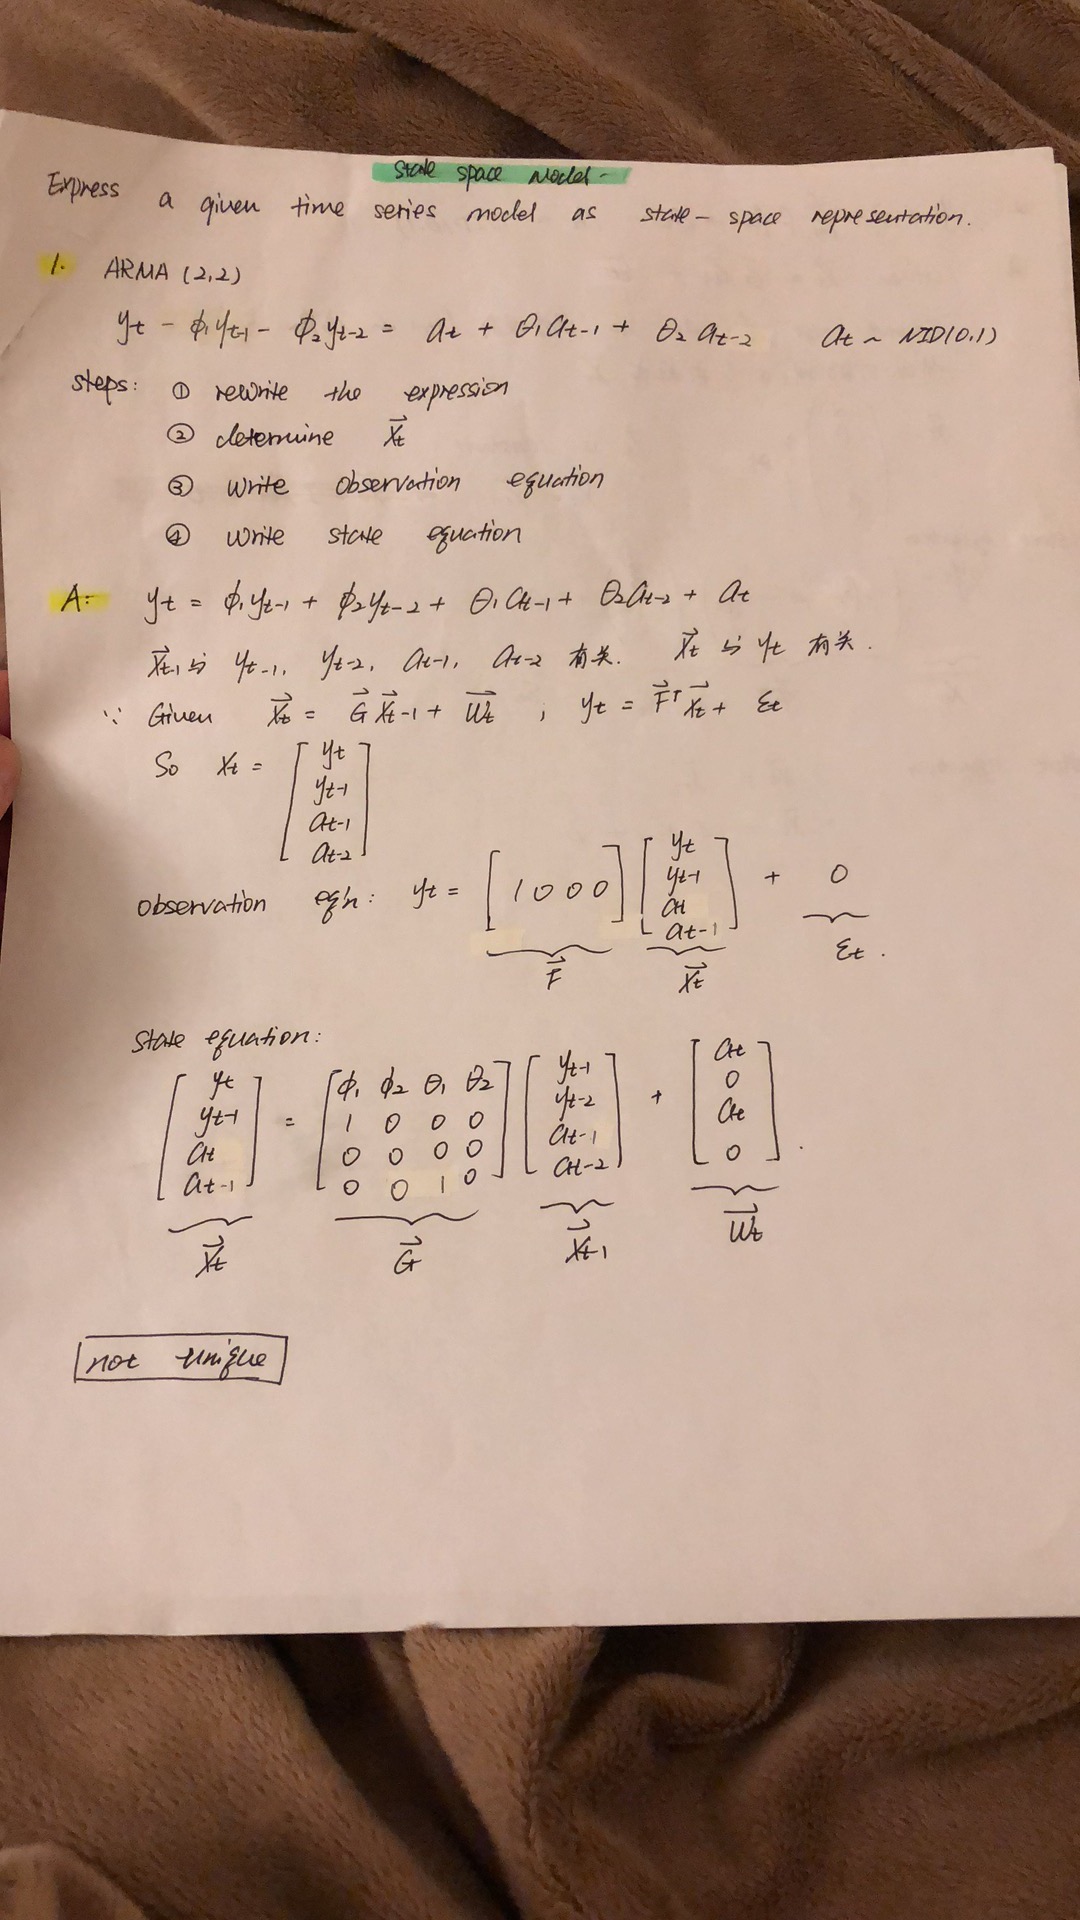 State space Model -
Express a given time series model as state-space representation.
1. ARMA (2,2)
yt - ϕ1yt-1 - ϕ2yt-2 = at + θ1at-1 + θ2at-2 at ~ NID(0,1)
steps: ① rewrite the expression
② determine X⃗t
③ write observation equation
④ write state equation
A: yt = ϕ1yt-1 + ϕ2yt-2 + θ1at-1 + θ2at-2 + at
X⃗t-1与 yt-1, yt-2, at-1, at-2 有关. X⃗t 与 yt 有关.
∵ Given X⃗t = G⃗ X⃗t-1 + W⃗t ; yt = F⃗ᵀX⃗t + εt
So Xt = [yt
yt-1
at-1
at-2]
observation eq'n: yt = [1 0 0 0] [yt
yt-1
at
at-1] + 0
F⃗ X⃗t εt.
state equation:
[yt = [ϕ1 ϕ2 θ1 θ2 [yt-1 + [at
yt-1 1 0 0 0 yt-2 0
at 0 0 0 0 at-1 at
at-1] 0 0 1 0] at-2] 0].
X⃗t G⃗ X⃗t-1 W⃗t
not unique